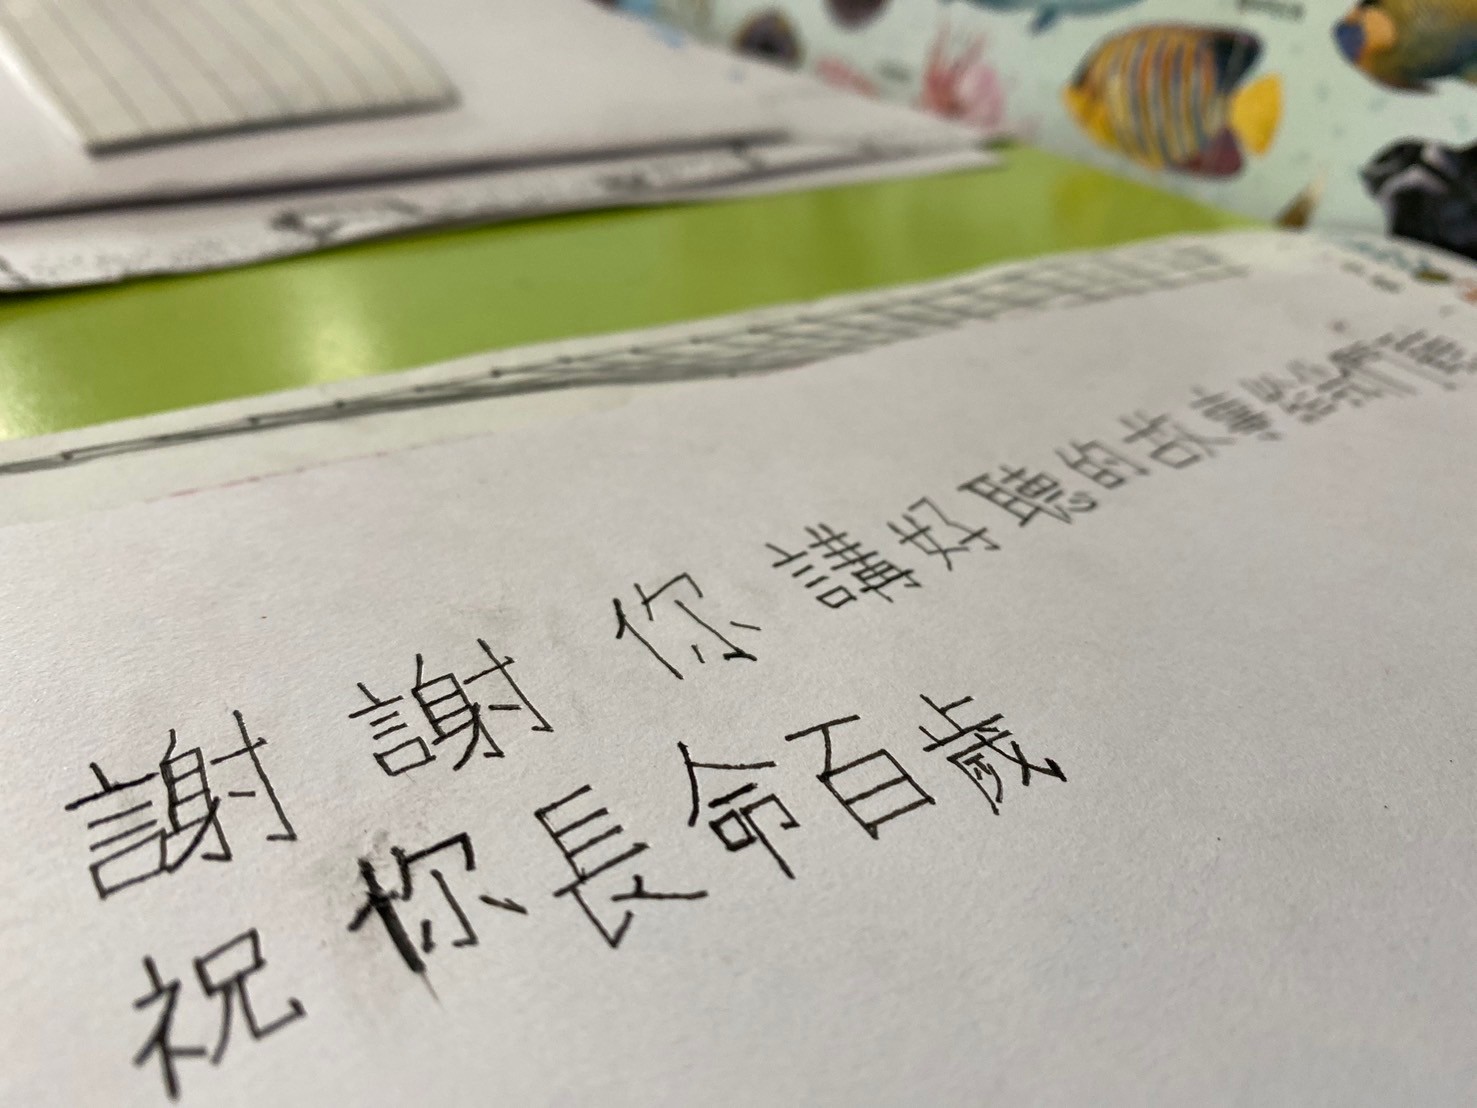 謝謝你講好聽的故事給我們聽
祝你長命百歲